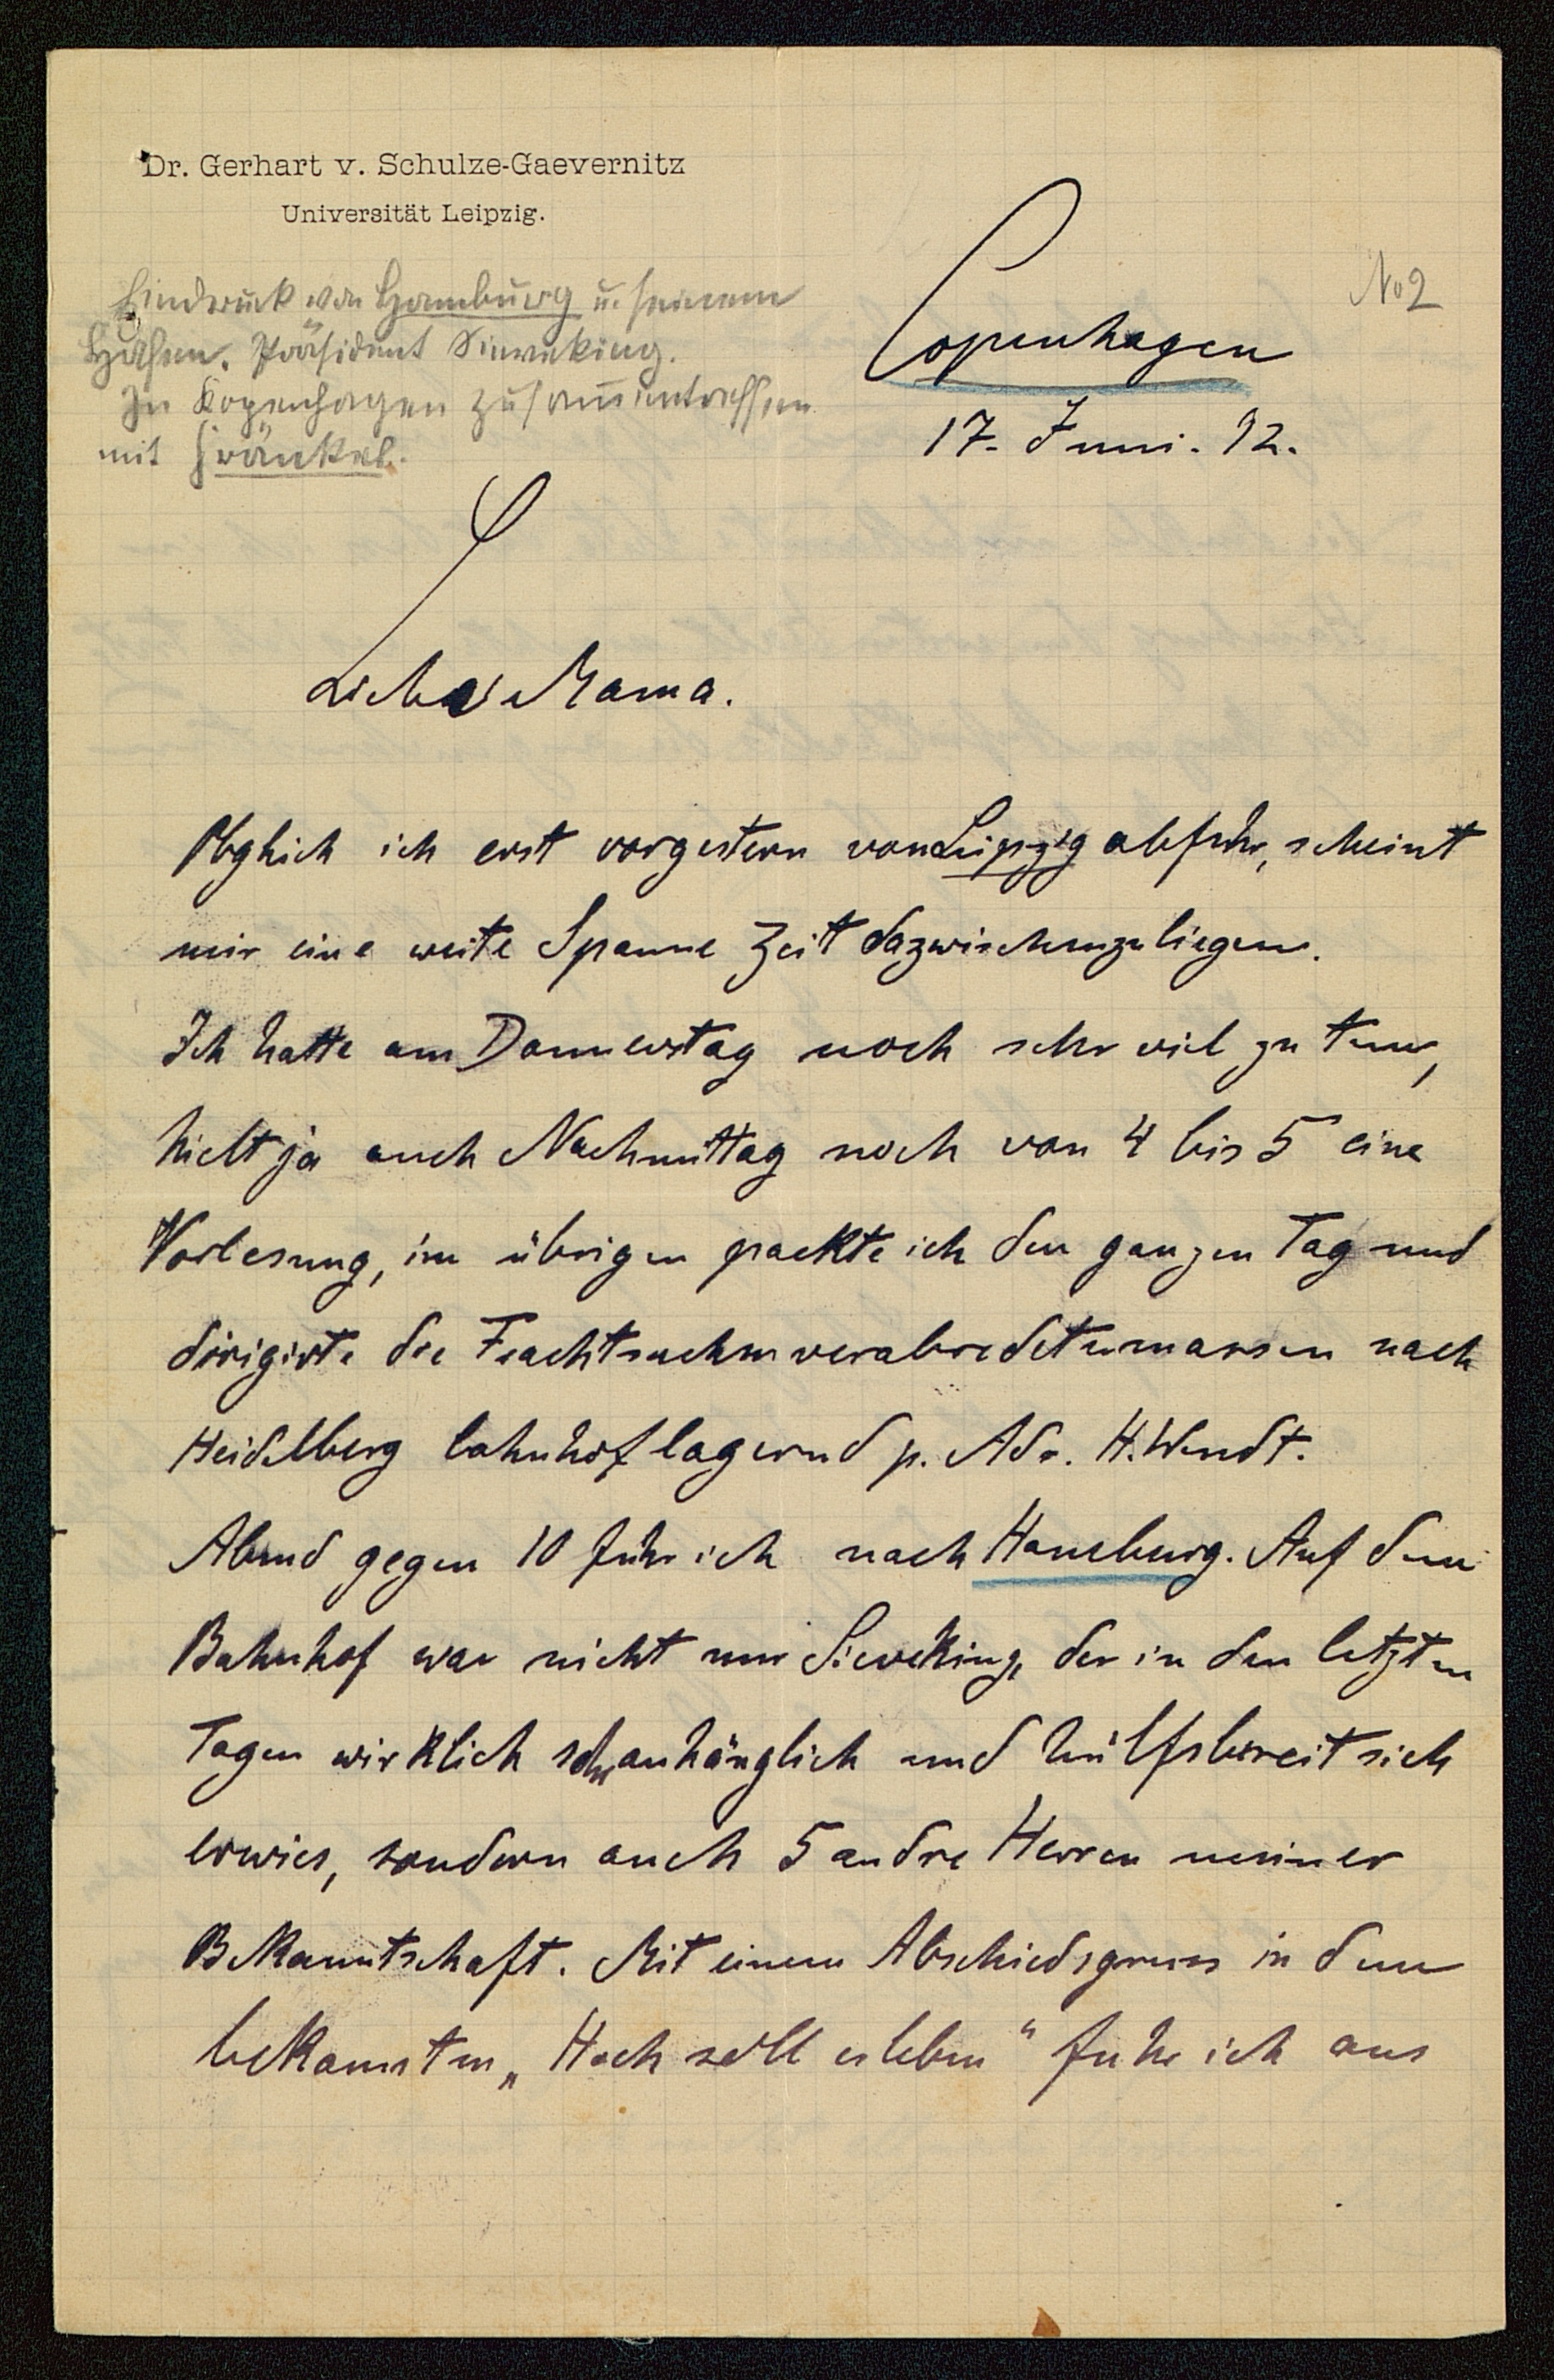 Dr. Gerhart v. Schulze-Gaevernitz
Universität Leipzig.
Eindruck von Hamburg u. seinem
Hafen. Präsident Sieveking.
In Kopenhagen Zusammentreffen
mit Fränkel.
No 2
Copenhagen
17. Juni. 92.
Liebe Mama.
Obgleich ich erst vorgestern von Leipzig abfuhr, scheint
mir eine weite Spanne Zeit dazwischenzuliegen.
Ich hatte am Donnerstag noch sehr viel zu tun,
hielt ja auch Nachmittag noch von 4 bis 5 eine
Vorlesung, im übrigen packte ich den ganzen Tag und
dirigirte die Frachtsachen verabredetermassen nach
Heidelberg bahnhoflagernd p. Adr. H. Wendt.
Abend gegen 10 fuhr ich nach Hamburg. Auf dem
Bahnhof war nicht nur Sieveking, der in den letzten
Tagen wirklich sehr anhänglich und hülfsbereit sich
erwies, sondern auch 5 andre Herren meiner
Bekanntschaft. Mit einem Abschiedsgruss in dem
bekannten „Hoch soll er leben" fuhr ich aus